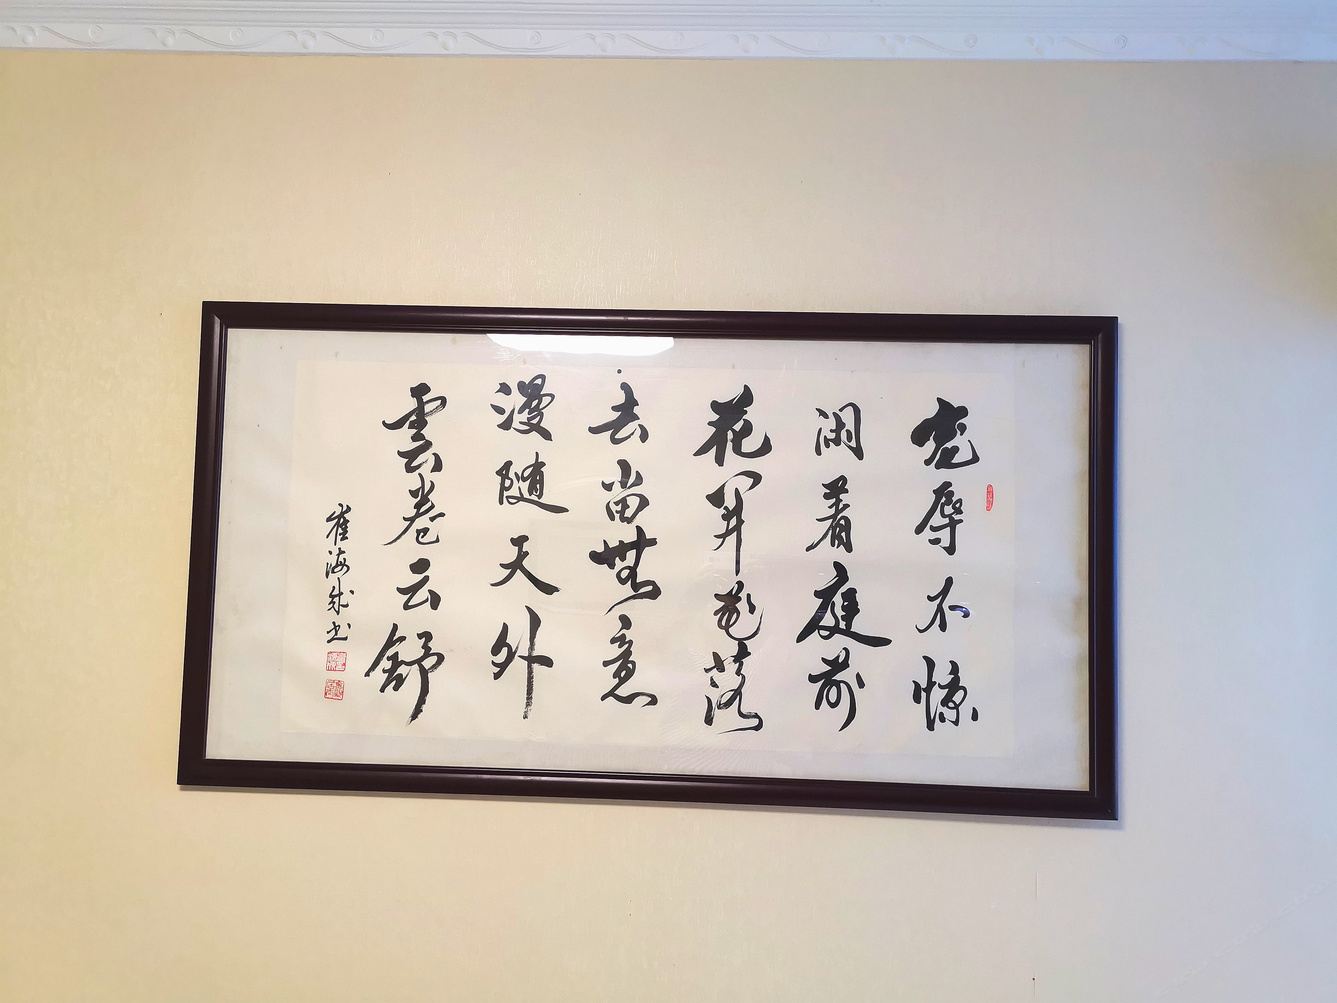 宠辱不惊
闲着庭前
花开花落
去留無意
漫随天外
雲卷云舒
崔海成书